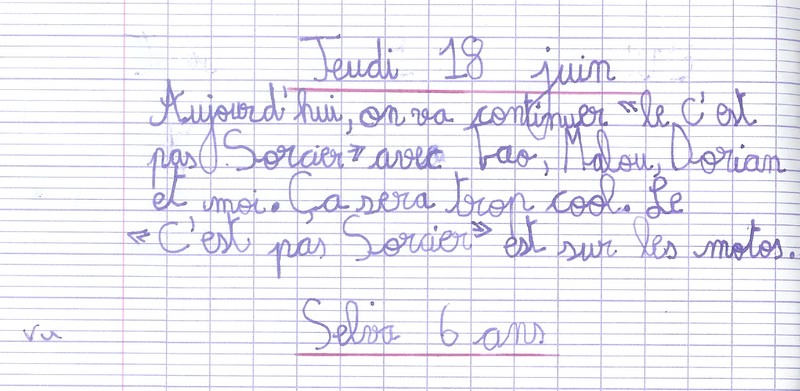 Jeudi 18 juin
Aujourd'hui, on va continuer "le C'est
pas Sorcier" avec Tao, Malou, Dorian
et moi. Ça sera trop cool. Le
"C'est pas Sorcier" est sur les motos.
Selva 6 ans
vu